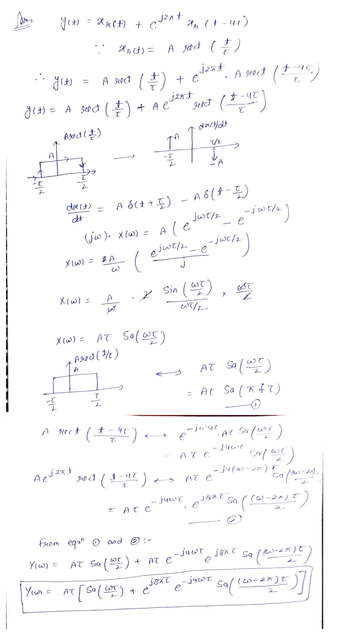 Ans:- y(t) = xr(t) + e^j2πt xr (t - 4τ)
∵ xr(t) = A rect (t/τ)
∴ y(t) = A rect (t/τ) + e^j2πt . A rect (t-4τ/τ)
y(t) = A rect (t/τ) + A e^j2πt rect (t-4τ/τ)
A rect(t/τ)
A
-τ/2 τ/2
dx(t)/dt
A
-τ/2 τ/2
-A
dx(t)/dt = A δ(t + τ/2) - A δ(t - τ/2)
(jω). X(ω) = A (e^jωτ/2 - e^-jωτ/2)
X(ω) = 2A/ω (e^jωτ/2 - e^-jωτ/2 / j)
X(ω) = A/ω . 2 Sin(ωτ/2)/ωτ/2 × ωτ/2
X(ω) = Aτ Sa(ωτ/2)
A rect(t/τ)
A
-τ/2 τ/2
↔ Aτ Sa(ωτ/2)
= Aτ Sa(πfτ)
①
A rect (t-4τ/τ) ↔ e^-jω4τ . Aτ Sa(ωτ/2)
= Aτ e^-j4ωτ Sa(ωτ/2)
Ae^j2πt rect (t-4τ/τ) ↔ Aτ e^-j4(ω-2π)τ Sa((ω-2π)τ/2)
= Aτ e^-j4ωτ . e^j8πτ Sa((ω-2π)τ/2)
②
From eqn ① and ② :-
Y(ω) = Aτ Sa(ωτ/2) + Aτ e^-j4ωτ e^j8πτ Sa((ω-2π)τ/2)
Y(ω) = Aτ [Sa(ωτ/2) + e^j8πτ e^-j4ωτ Sa((ω-2π)τ/2)]